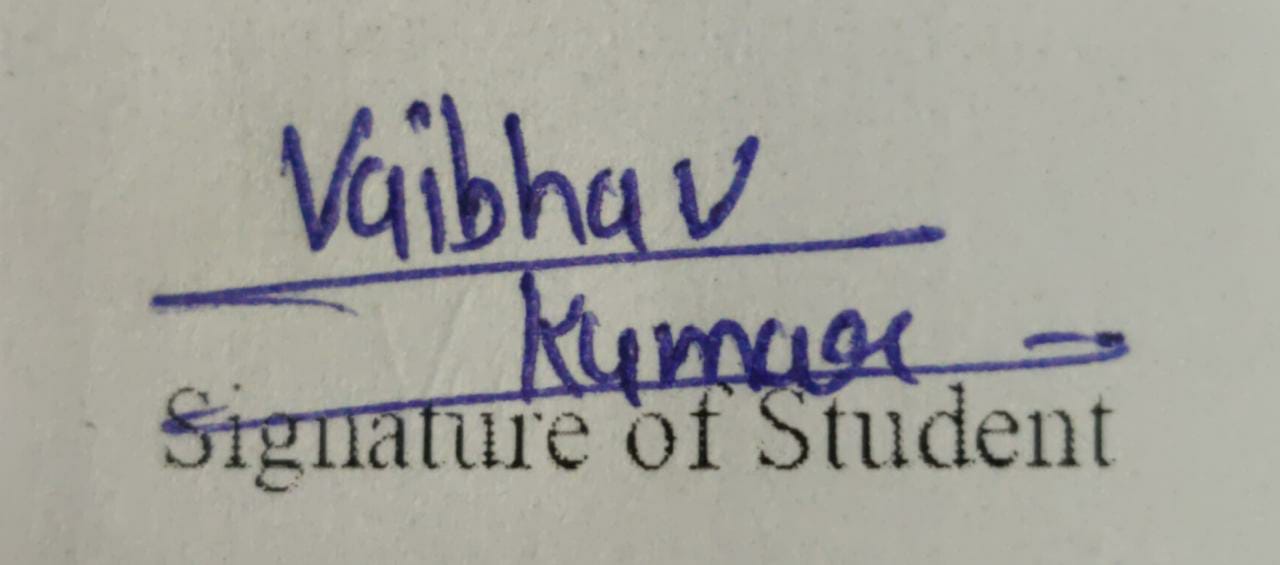 Vaibhav
Kumar
Signature of Student